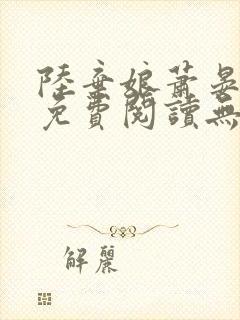 陸棄娘蕭晏
免費閱讀無
解麗